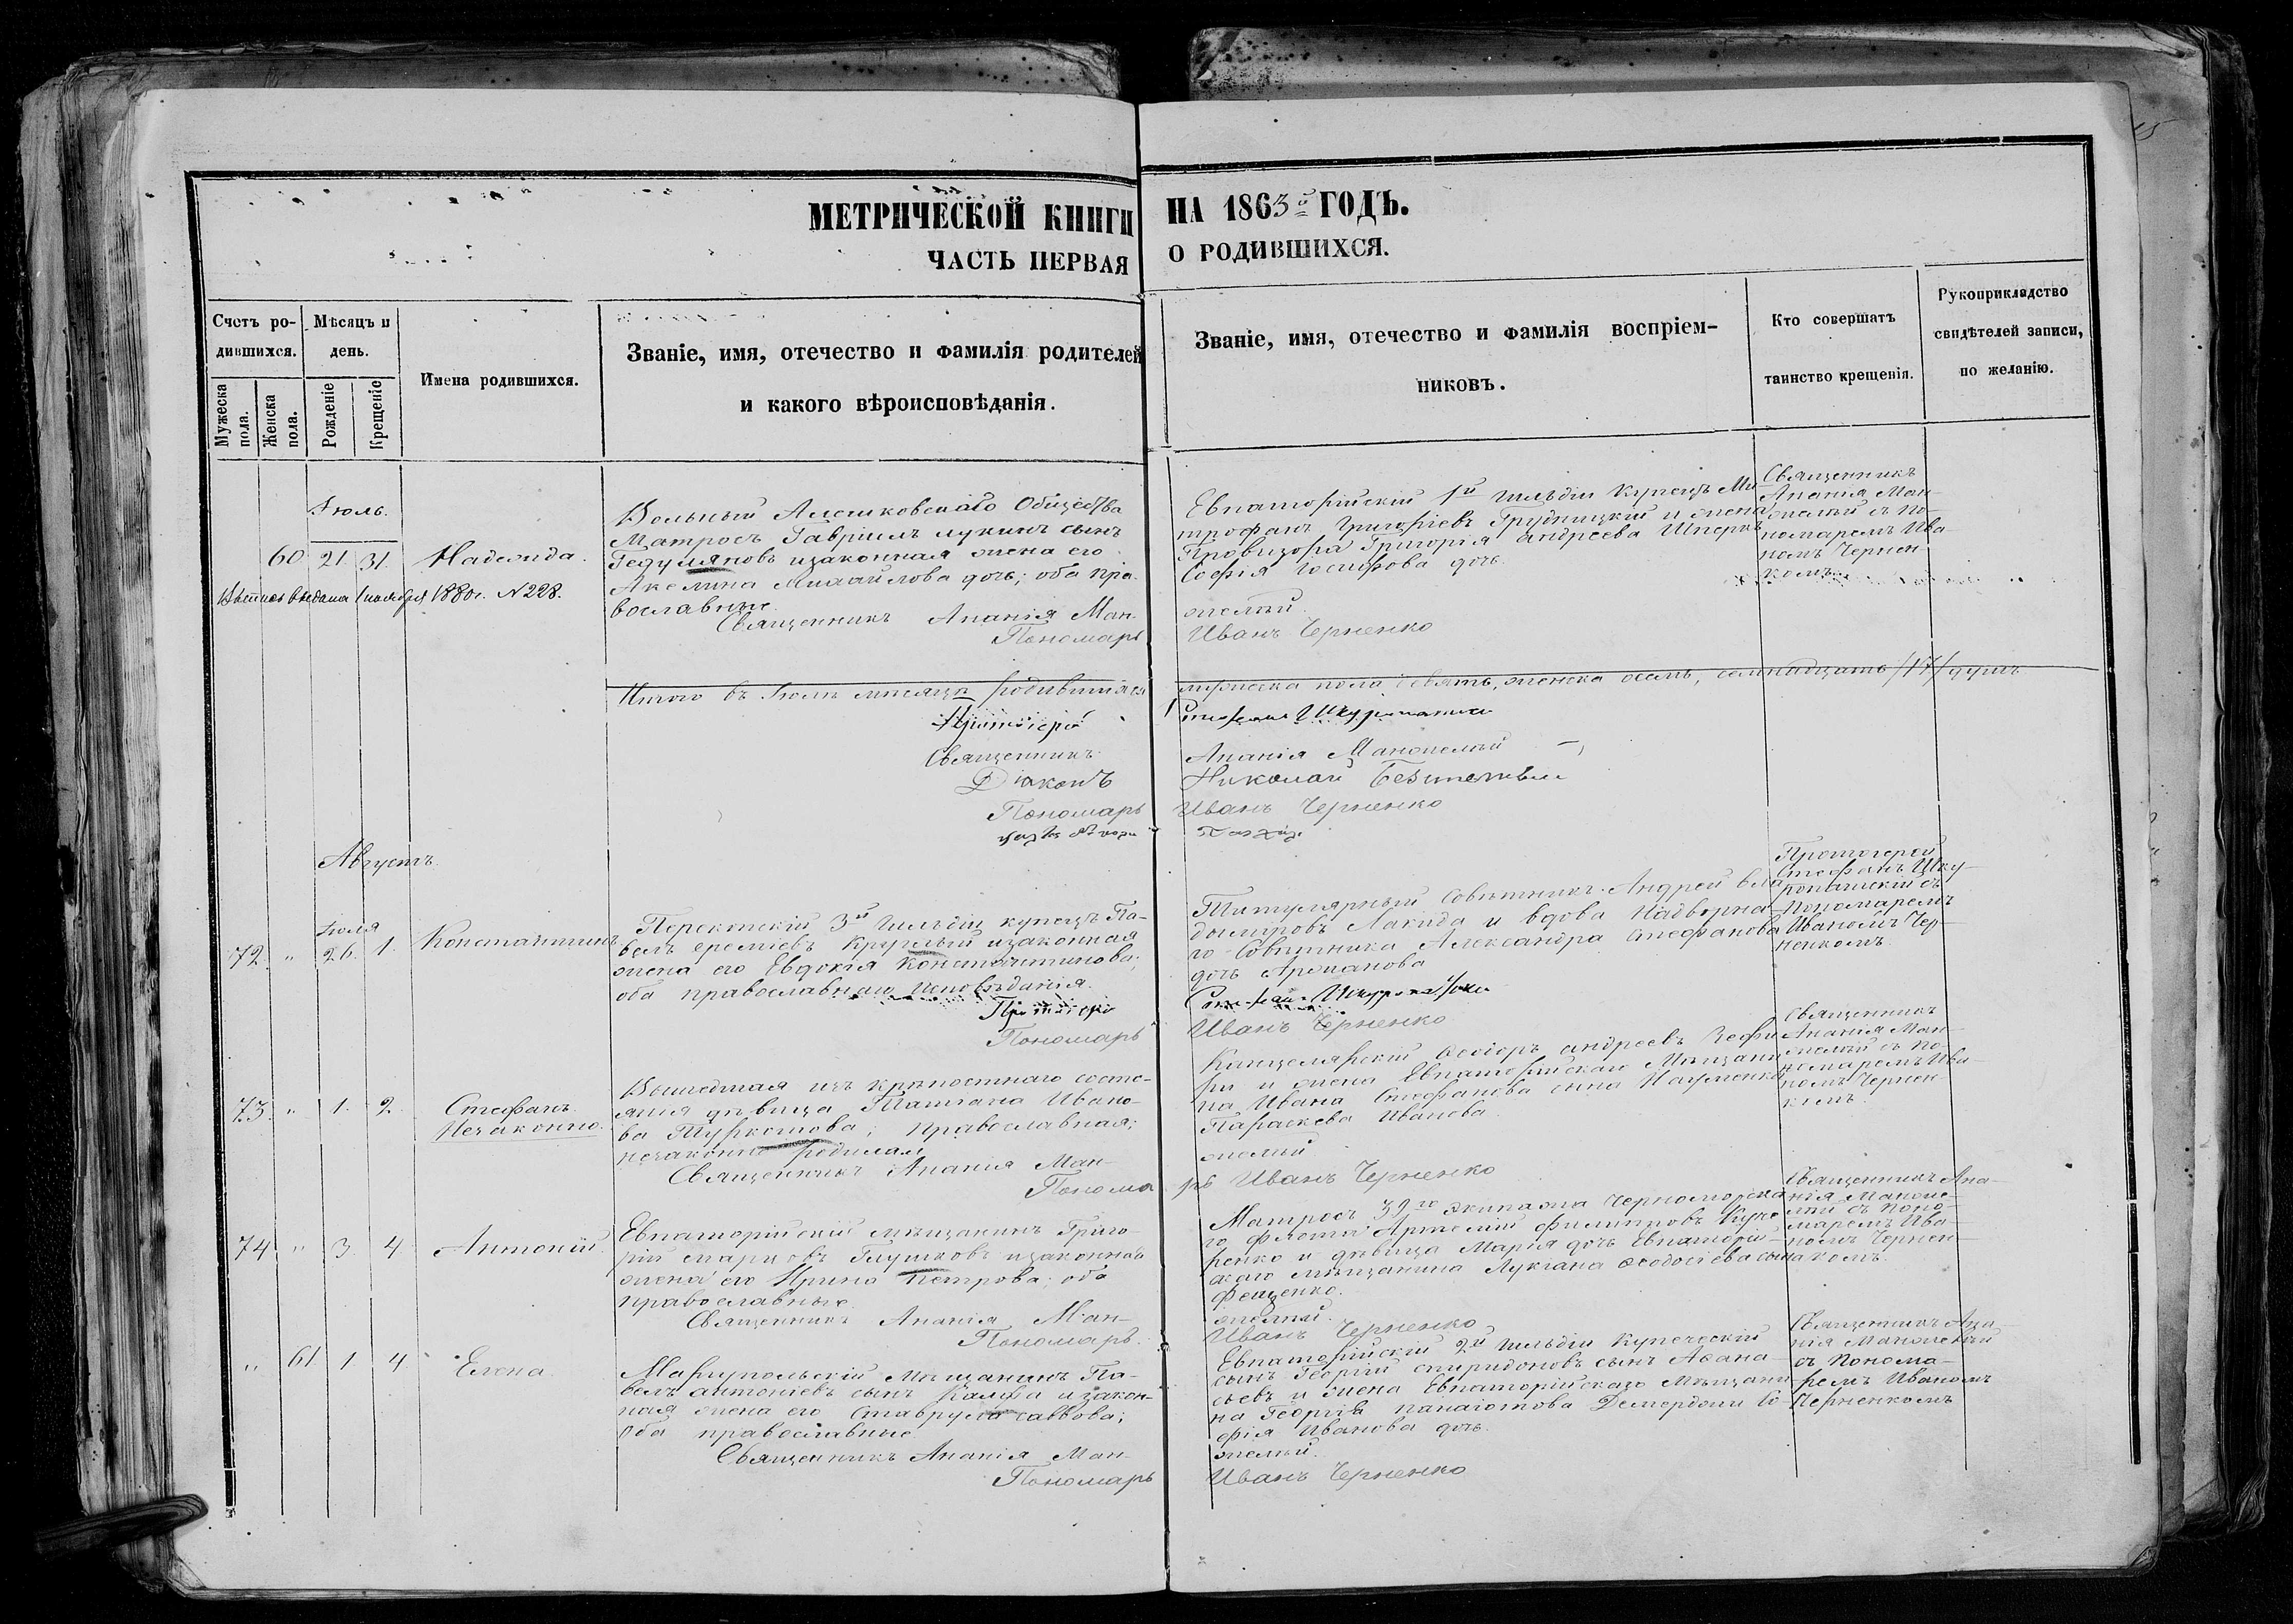 МЕТРИЧЕСКОЙ КНИГИ НА 1865й ГОДЪ.
ЧАСТЬ ПЕРВАЯ О РОДИВШИХСЯ.
Счетъ ро-
дившихся.
Мѣсяцъ и
день.
Мужеска пола.
Женска пола.
Рожденіе
Крещеніе
Имена родившихся.
Званіе, имя, отечество и фамилія родителей
и какого вѣроисповѣданія.
Званіе, имя, отечество и фамилія воспріем-
никовъ.
Кто совершатъ
таинство крещенія.
Рукоприкладство
свидѣтелей записи,
по желанію.
Іюль.
60 21 31 Надежда.
выдана 1 ноября 1880г. N 228.
Вольный Алешковскаго Общества
Матросъ Гавріилъ Лукинъ сынъ
и законная жена его
Акелина Михайлова дочь; оба пра-
вославные.
Священникъ Ананія Ман-
Пономарь
Евпаторійскій 1й гильдіи купецъ Ми-
трофанъ Григорьевъ Грудницкій и жена
Провизора Григорія Андреева
Софія Іосифова дочь
жолый.
Иванъ Черненко
Священникъ
Ананія Ман-
жолый съ По-
номаремъ Ива
номъ Чернен
комъ.
Итого въ Іюлѣ мѣсяцѣ родившихся мужеска пола девять, женска осемь, семнадцать /17/ душъ
Протоіерей Стефанъ
Священникъ Ананія Манжелый
Діаконъ Николай
Пономарь Иванъ Черненко
Августъ.
Іюля
72 " 26 1. Константинъ
Перекопскій 3й гильдіи купецъ Па-
велъ Ереміевъ Круглый и законная
жена его Евдокія Константинова;
оба православнаго исповѣданія.
Протоіерей
Пономарь
Титулярный Совѣтникъ Андрей Вла
диміровъ Лакида и вдова Надворна-
го Совѣтника Александра Стефанова
дочь
Стефанъ
Иванъ Черненко
Протоіерей
Стефанъ Шку-
ропатскій съ
Пономаремъ
Иваномъ Чер-
ненкомъ.
73 " 1. 2. Стефанъ.
Незаконно.
Вышедшая изъ крѣпостнаго состо-
янія дѣвица Татіана Ивано-
ва Туркотова; православная;
незаконно родила
Священникъ Ананія Ман-
Пономарь
Канцелярскій Ѳеодоръ Андреевъ Зефи
ри и жена Евпаторійскаго Мѣщани
на Ивана Стефанова сына Науменка
Параскева Иванова
жолый
Иванъ Черненко
Священникъ
Ананія Ман-
жолый съ По-
номаремъ Ива-
номъ Чернен-
комъ.
74 " 3. 4 Антоній.
Евпаторійскій мѣщанинъ Григо-
рій Марковъ Глушковъ и законная
жена его Ирина Петрова; оба
православные.
Священникъ Ананія Ман-
Пономарь.
Матросъ 39го экипажа Черноморска
го флота Артемій Филипповъ Кухо
ренко и дѣвица Марія дочь Евпаторій-
скаго мѣщанина Лукіана Ѳеодосіева сына
Фещенко.
жолый.
Иванъ Черненко
Священникъ Ана-
нія Манже-
лый съ Поно-
маремъ Ива-
номъ Чернен-
комъ.
" 61 1 4 Елена.
Маріупольскій Мѣщанинъ Па-
велъ Антоніевъ сынъ Калфа и закон-
ная жена его Ставрула Саввова;
оба православные
Священникъ Ананія Ман-
Пономарь
Евпаторійскій 2й гильдіи купеческій
сынъ Георгій Спиридоновъ сынъ Аѳана-
сьевъ и жена Евпаторійскаго Мѣщани
на Георгія Панаіотова Демерджи Со-
фія Иванова дочь.
жолый.
Иванъ Черненко
Священникъ Ана
нія Манжелый
съ Понома-
ремъ Иваномъ
Черненкомъ